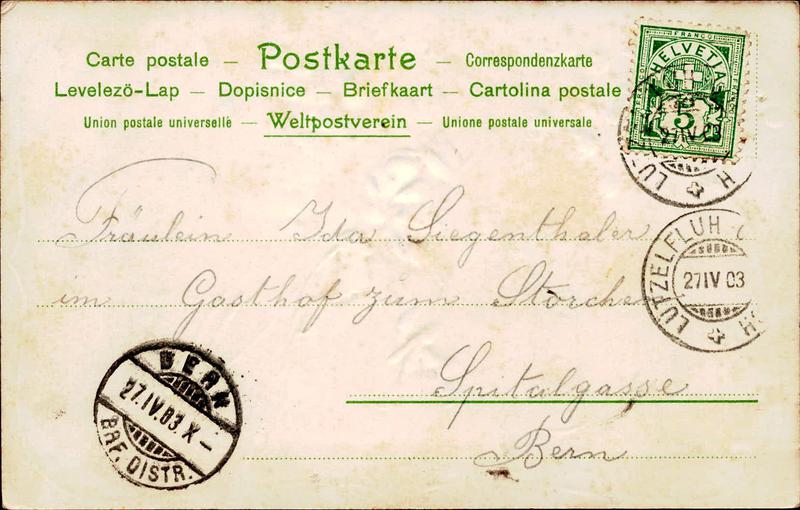 Carte postale — Postkarte — Correspondenzkarte
Levelezö-Lap — Dopisnice — Briefkaart — Cartolina postale
Union postale universelle — Weltpostverein — Unione postale universale
FRANCO
HELVETIA
5
27 IV 03
LÜTZELFLUH
27 IV 03
Fräulein Ida Siegenthaler
im Gasthof zum Storchen
Spitalgasse
Bern
BERN
27.IV.03.X—
BRF. DISTR.